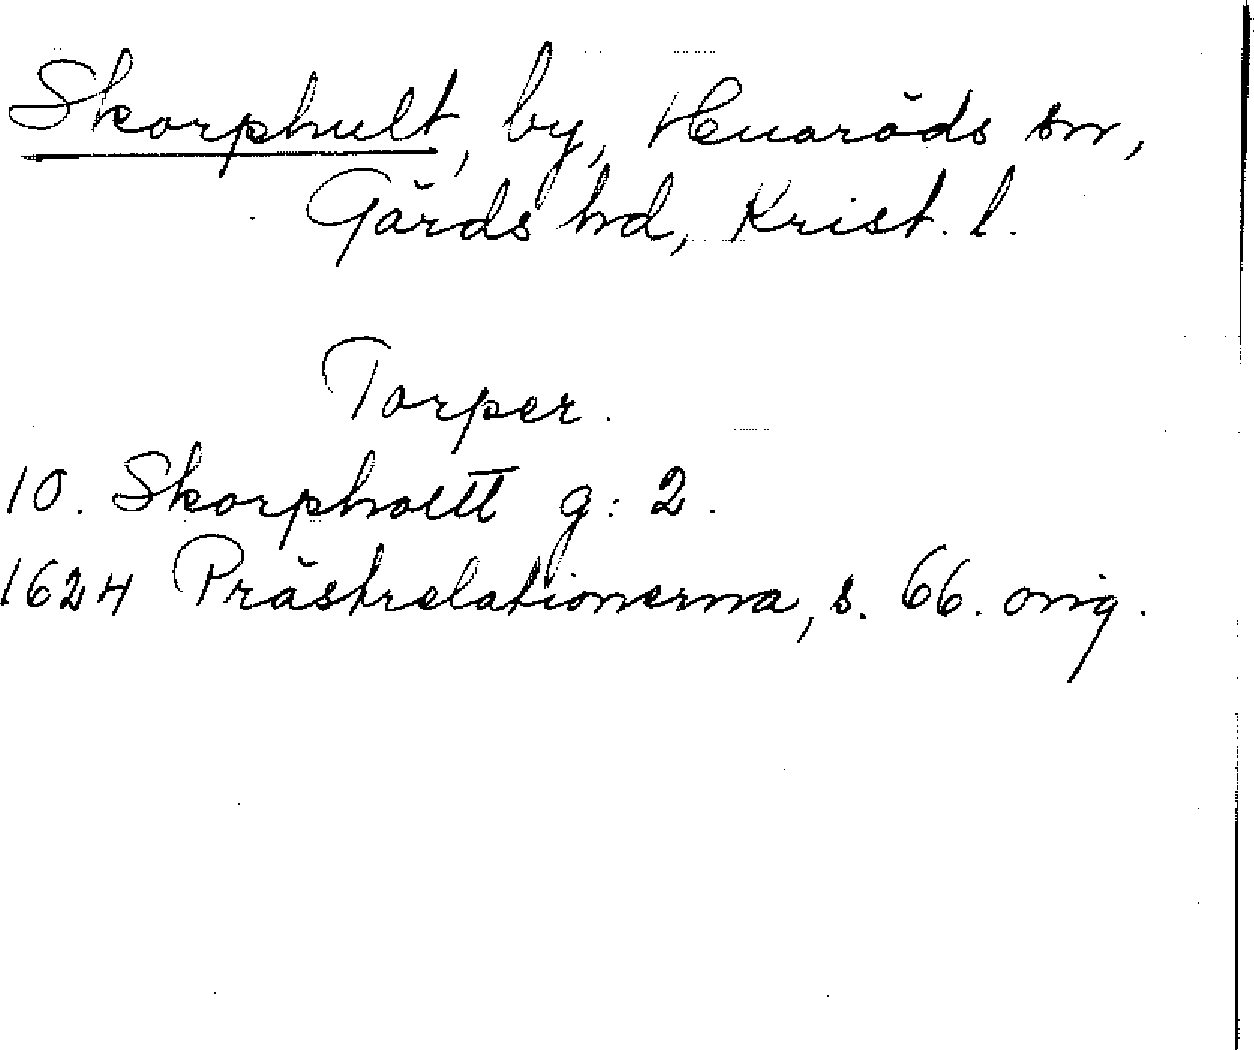 Skorphult, by, Huaröds sn,
Gärds hd, Krist. l.
Torper.
10. Skorpholtt g: 2.
1624 Prästrelationerna, s. 66. orig.